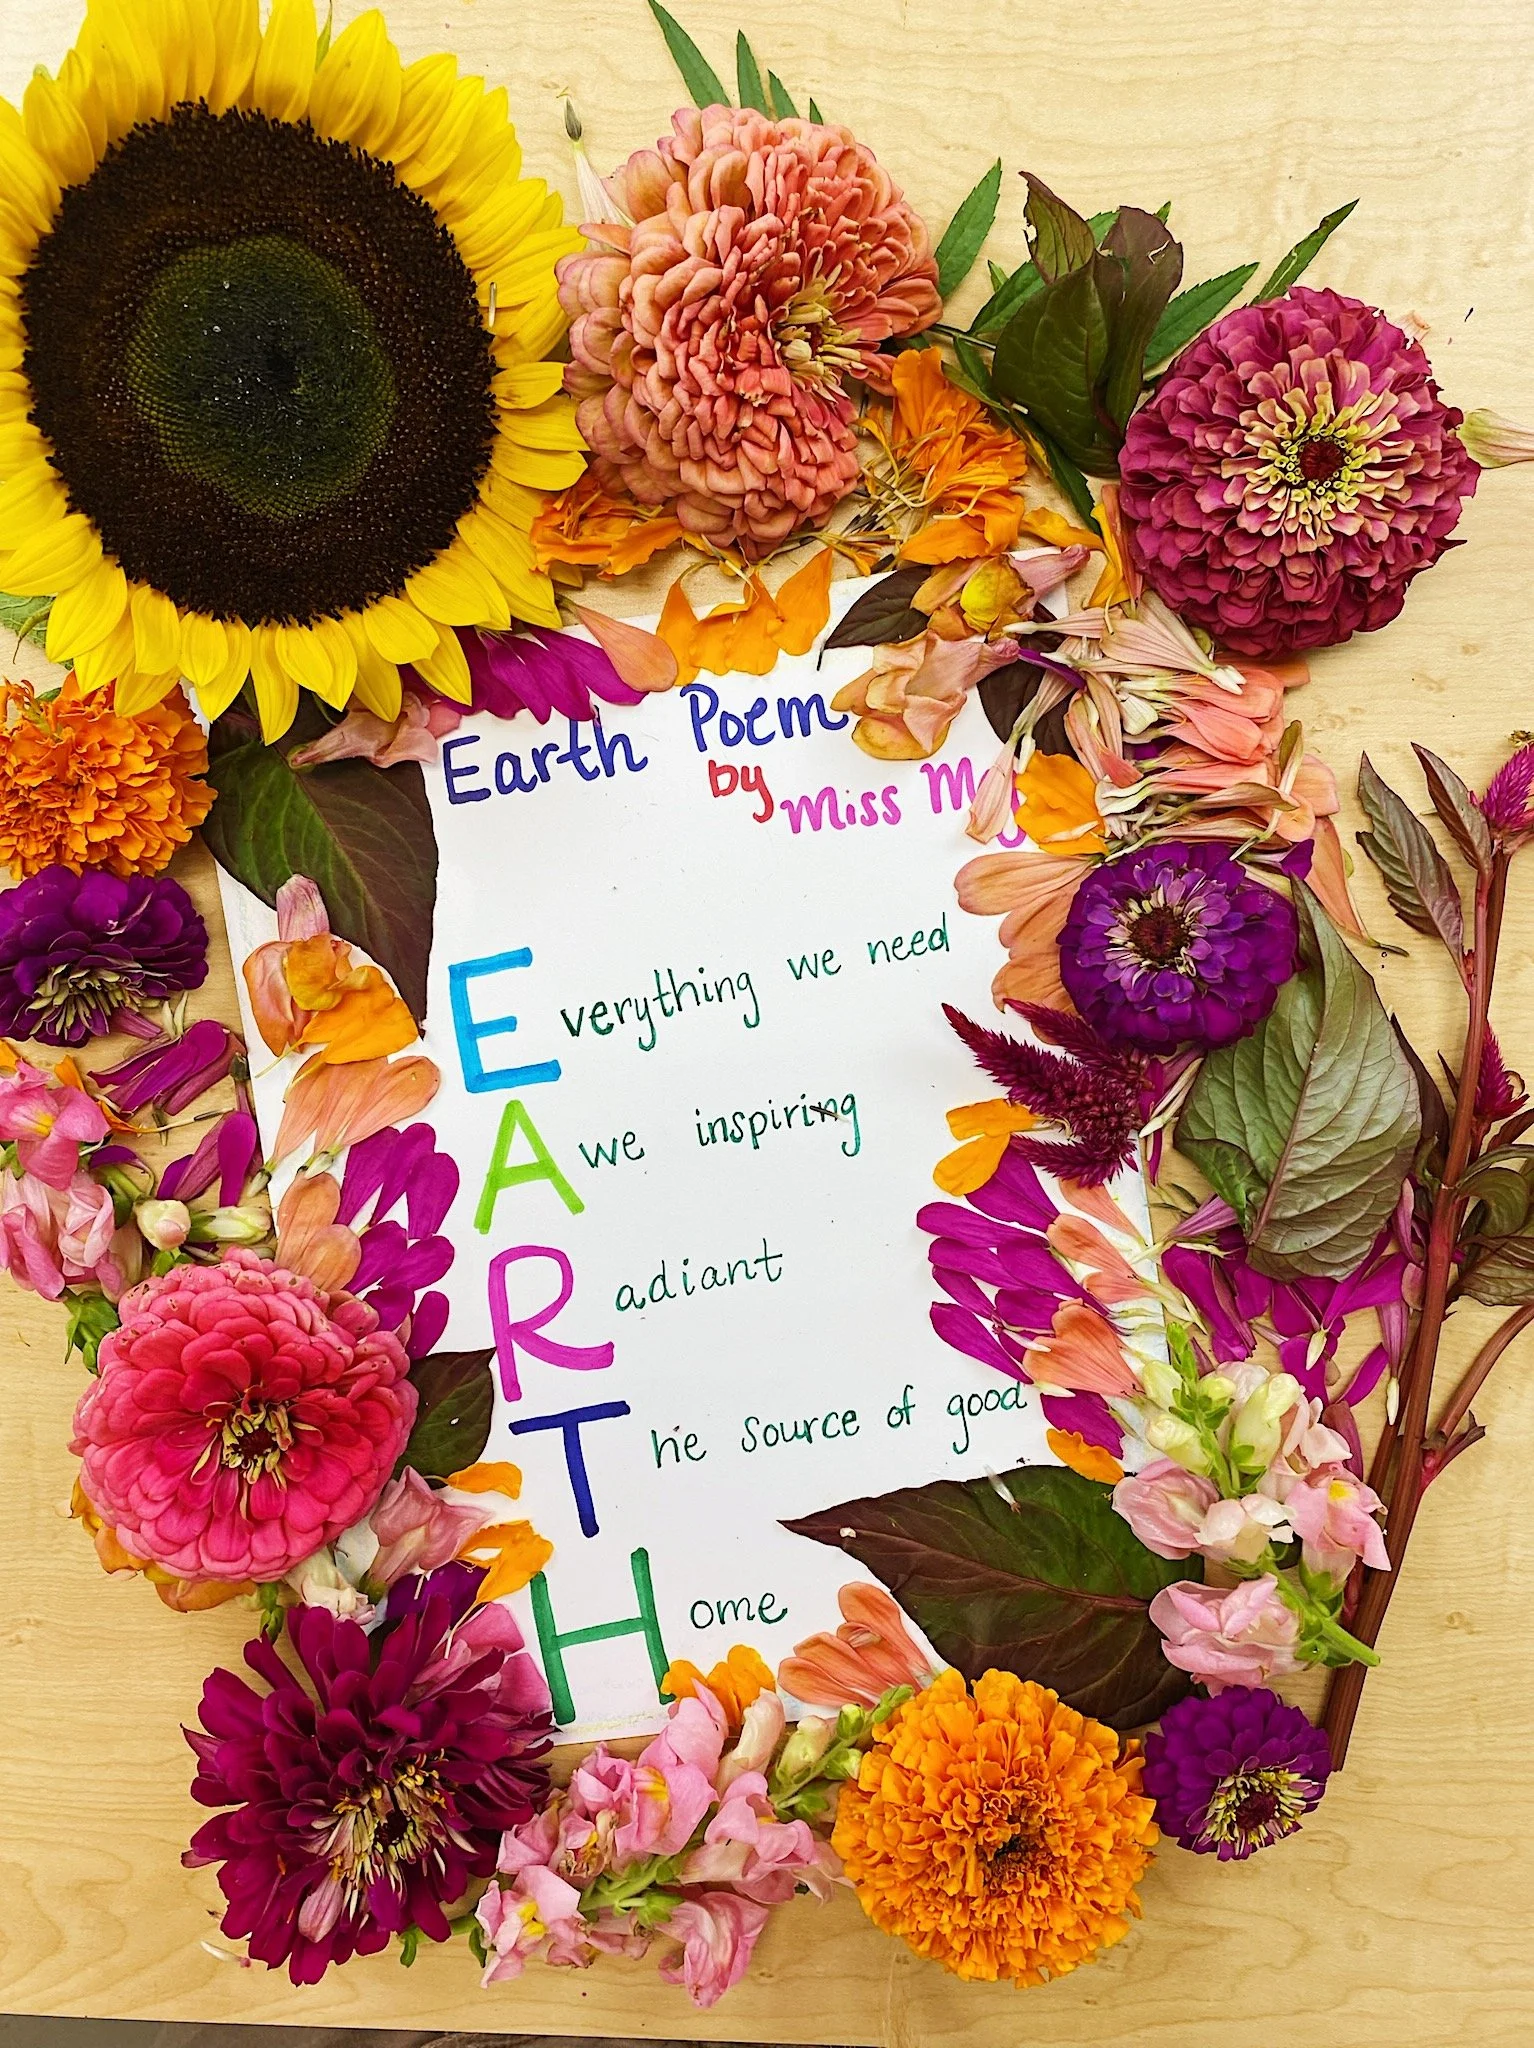 Earth Poem
by
Miss
Everything we need
Awe inspiring
Radiant
The source of good
Home